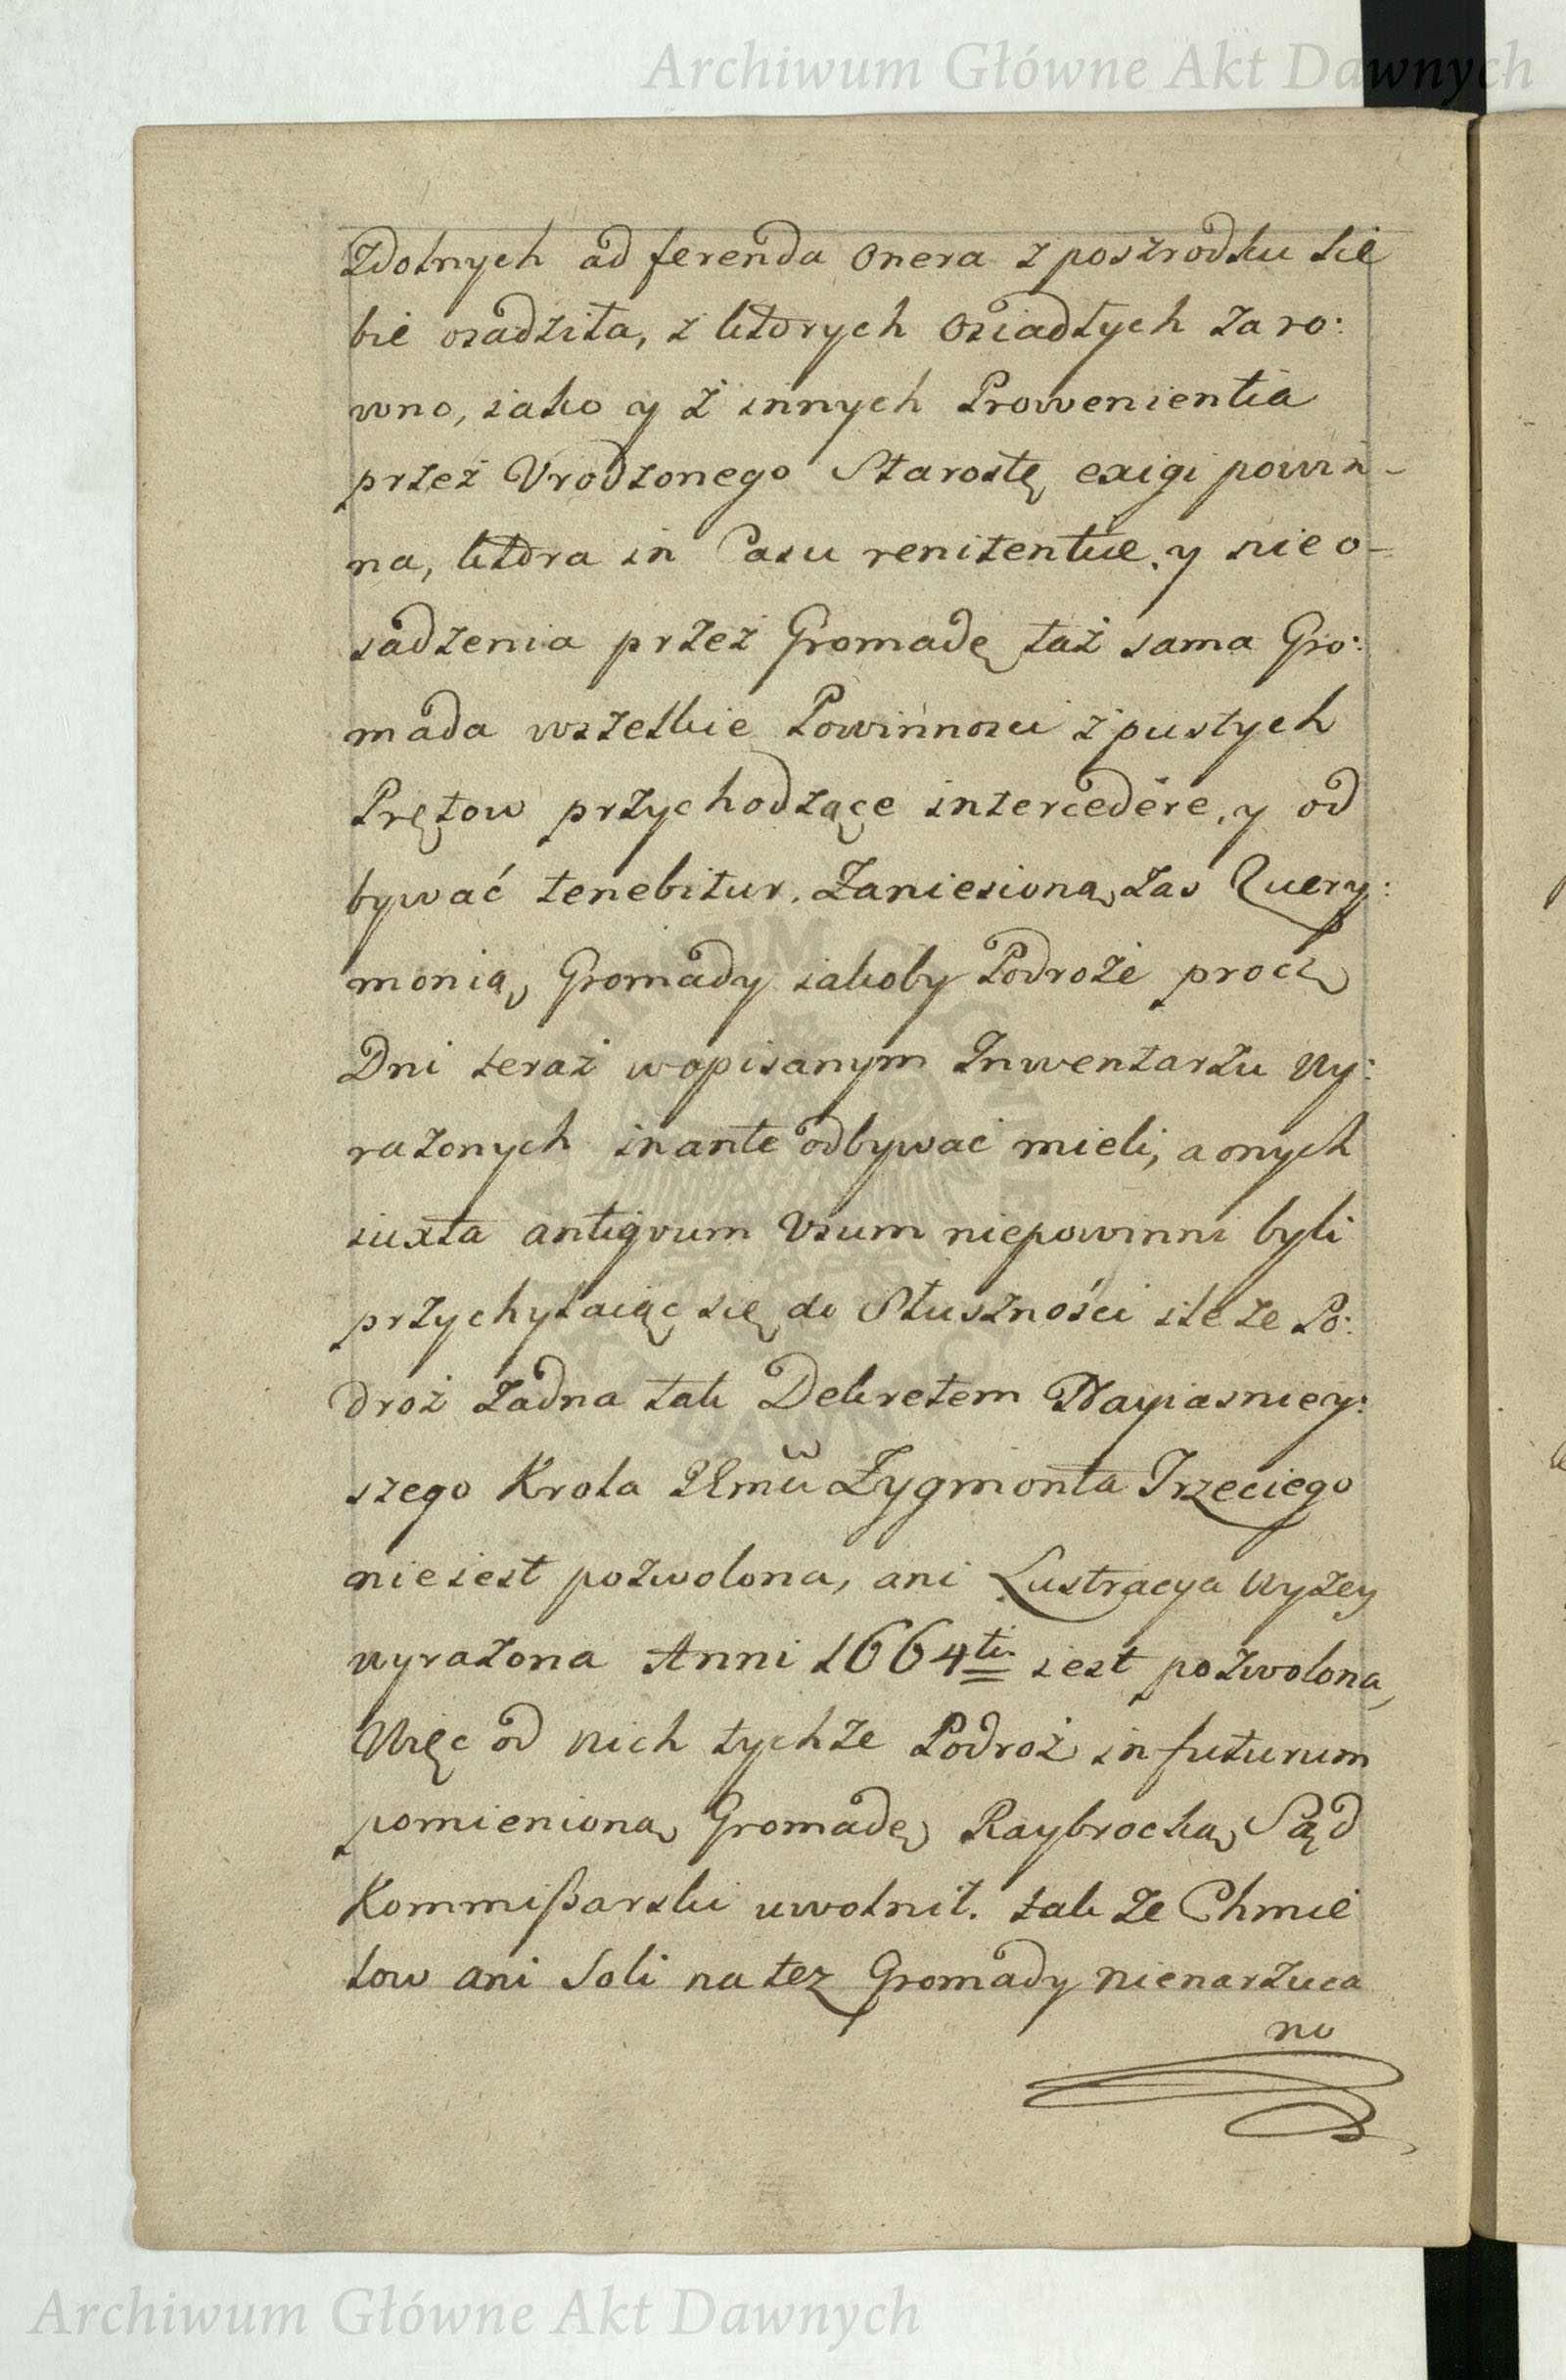 Archiwum Główne Akt Dawnych
Zdolnych ad ferenda onera z poszrodku sie
bie osadziła, z ktorych osiadłych za ro:
wno, iako y z innych Prowenientia
przez Vrodzonego Starostę exigi powin-
na, ktora in Casu renitentiæ y nie o-
sadzenia przez Gromadę taż sama Gro:
mada wszelkie Powinnosci z pustych
Prętow przychodzące intercedere, y od
bywać tenebitur. Zaniesioną zas Query:
monią Gromady iakoby Podroże procz
Dni teraz w opisanym Inwentarzu wy:
rażonych inante odbywac mieli, a onych
iuxta antiqvum Vsum niepowinni byli
przychylaiąc się do Słuszności ile ze Po:
droż żadna tak Dekretem Nayiasniey:
szego Krola JEmci Zygmonta Trzeciego
nie iest pozwolona, ani Lustracya wyżey
wyrażona Anni 1664ti iest pozwolona,
Więc od nich tychże Podroż in futurum
pomienioną Gromadę Raybrocką Sąd
Kommißarski uwolnił. tak że Chmie
low ani Soli na tez Gromady nienarzuca
no
Archiwum Główne Akt Dawnych